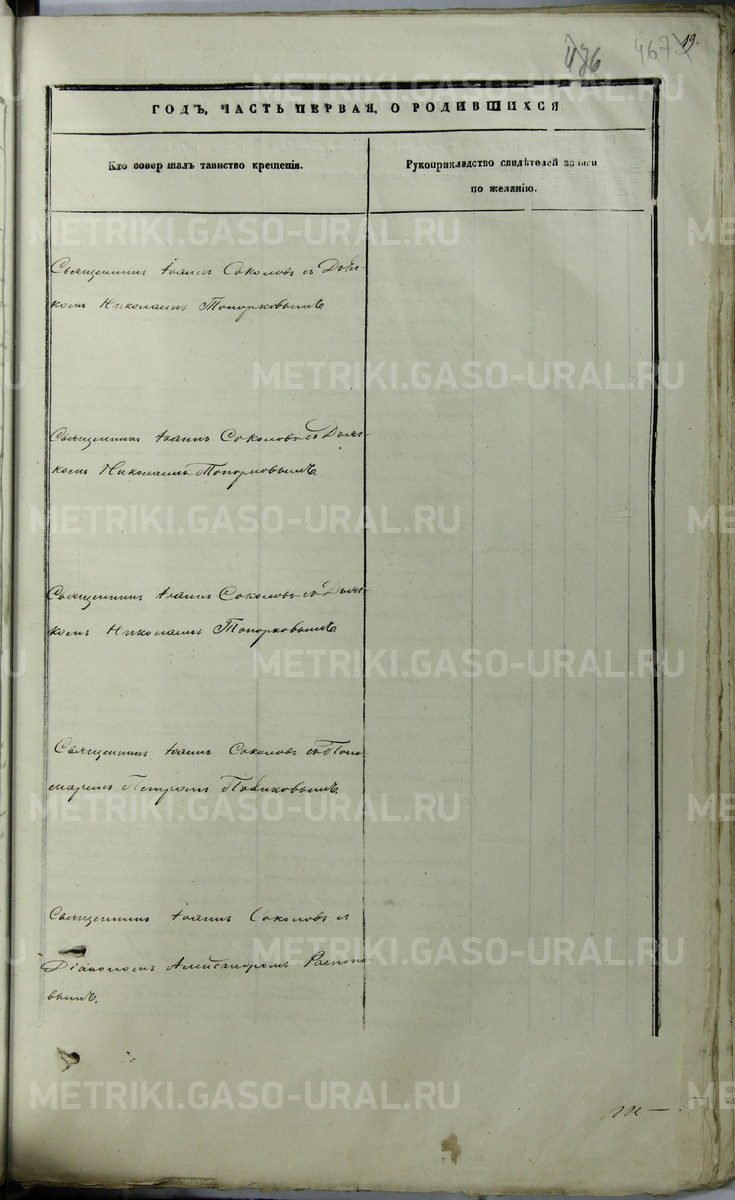 19.
467
ГОДЪ, ЧАСТЬ ПЕРВАЯ, О РОДИВШИХСЯ
Кто совершалъ таинство крещенія.
Рукоприкладство свидѣтелей записи
по желанію.
Священникъ Іоаннъ Соколовъ съ Дьяч-
комъ Николаемъ Топорковымъ
Священникъ Іоаннъ Соколовъ съ Дьяч-
комъ Николаемъ Топорковымъ.
Священникъ Іоаннъ Соколовъ съ Дьяч-
комъ Николаемъ Топорковымъ
Священникъ Іоаннъ Соколовъ съ Поно-
маремъ Петромъ
Священникъ Іоаннъ Соколовъ съ
Діакономъ Александромъ Распопо-
вымъ.
METRIKI.GASO-URAL.RU